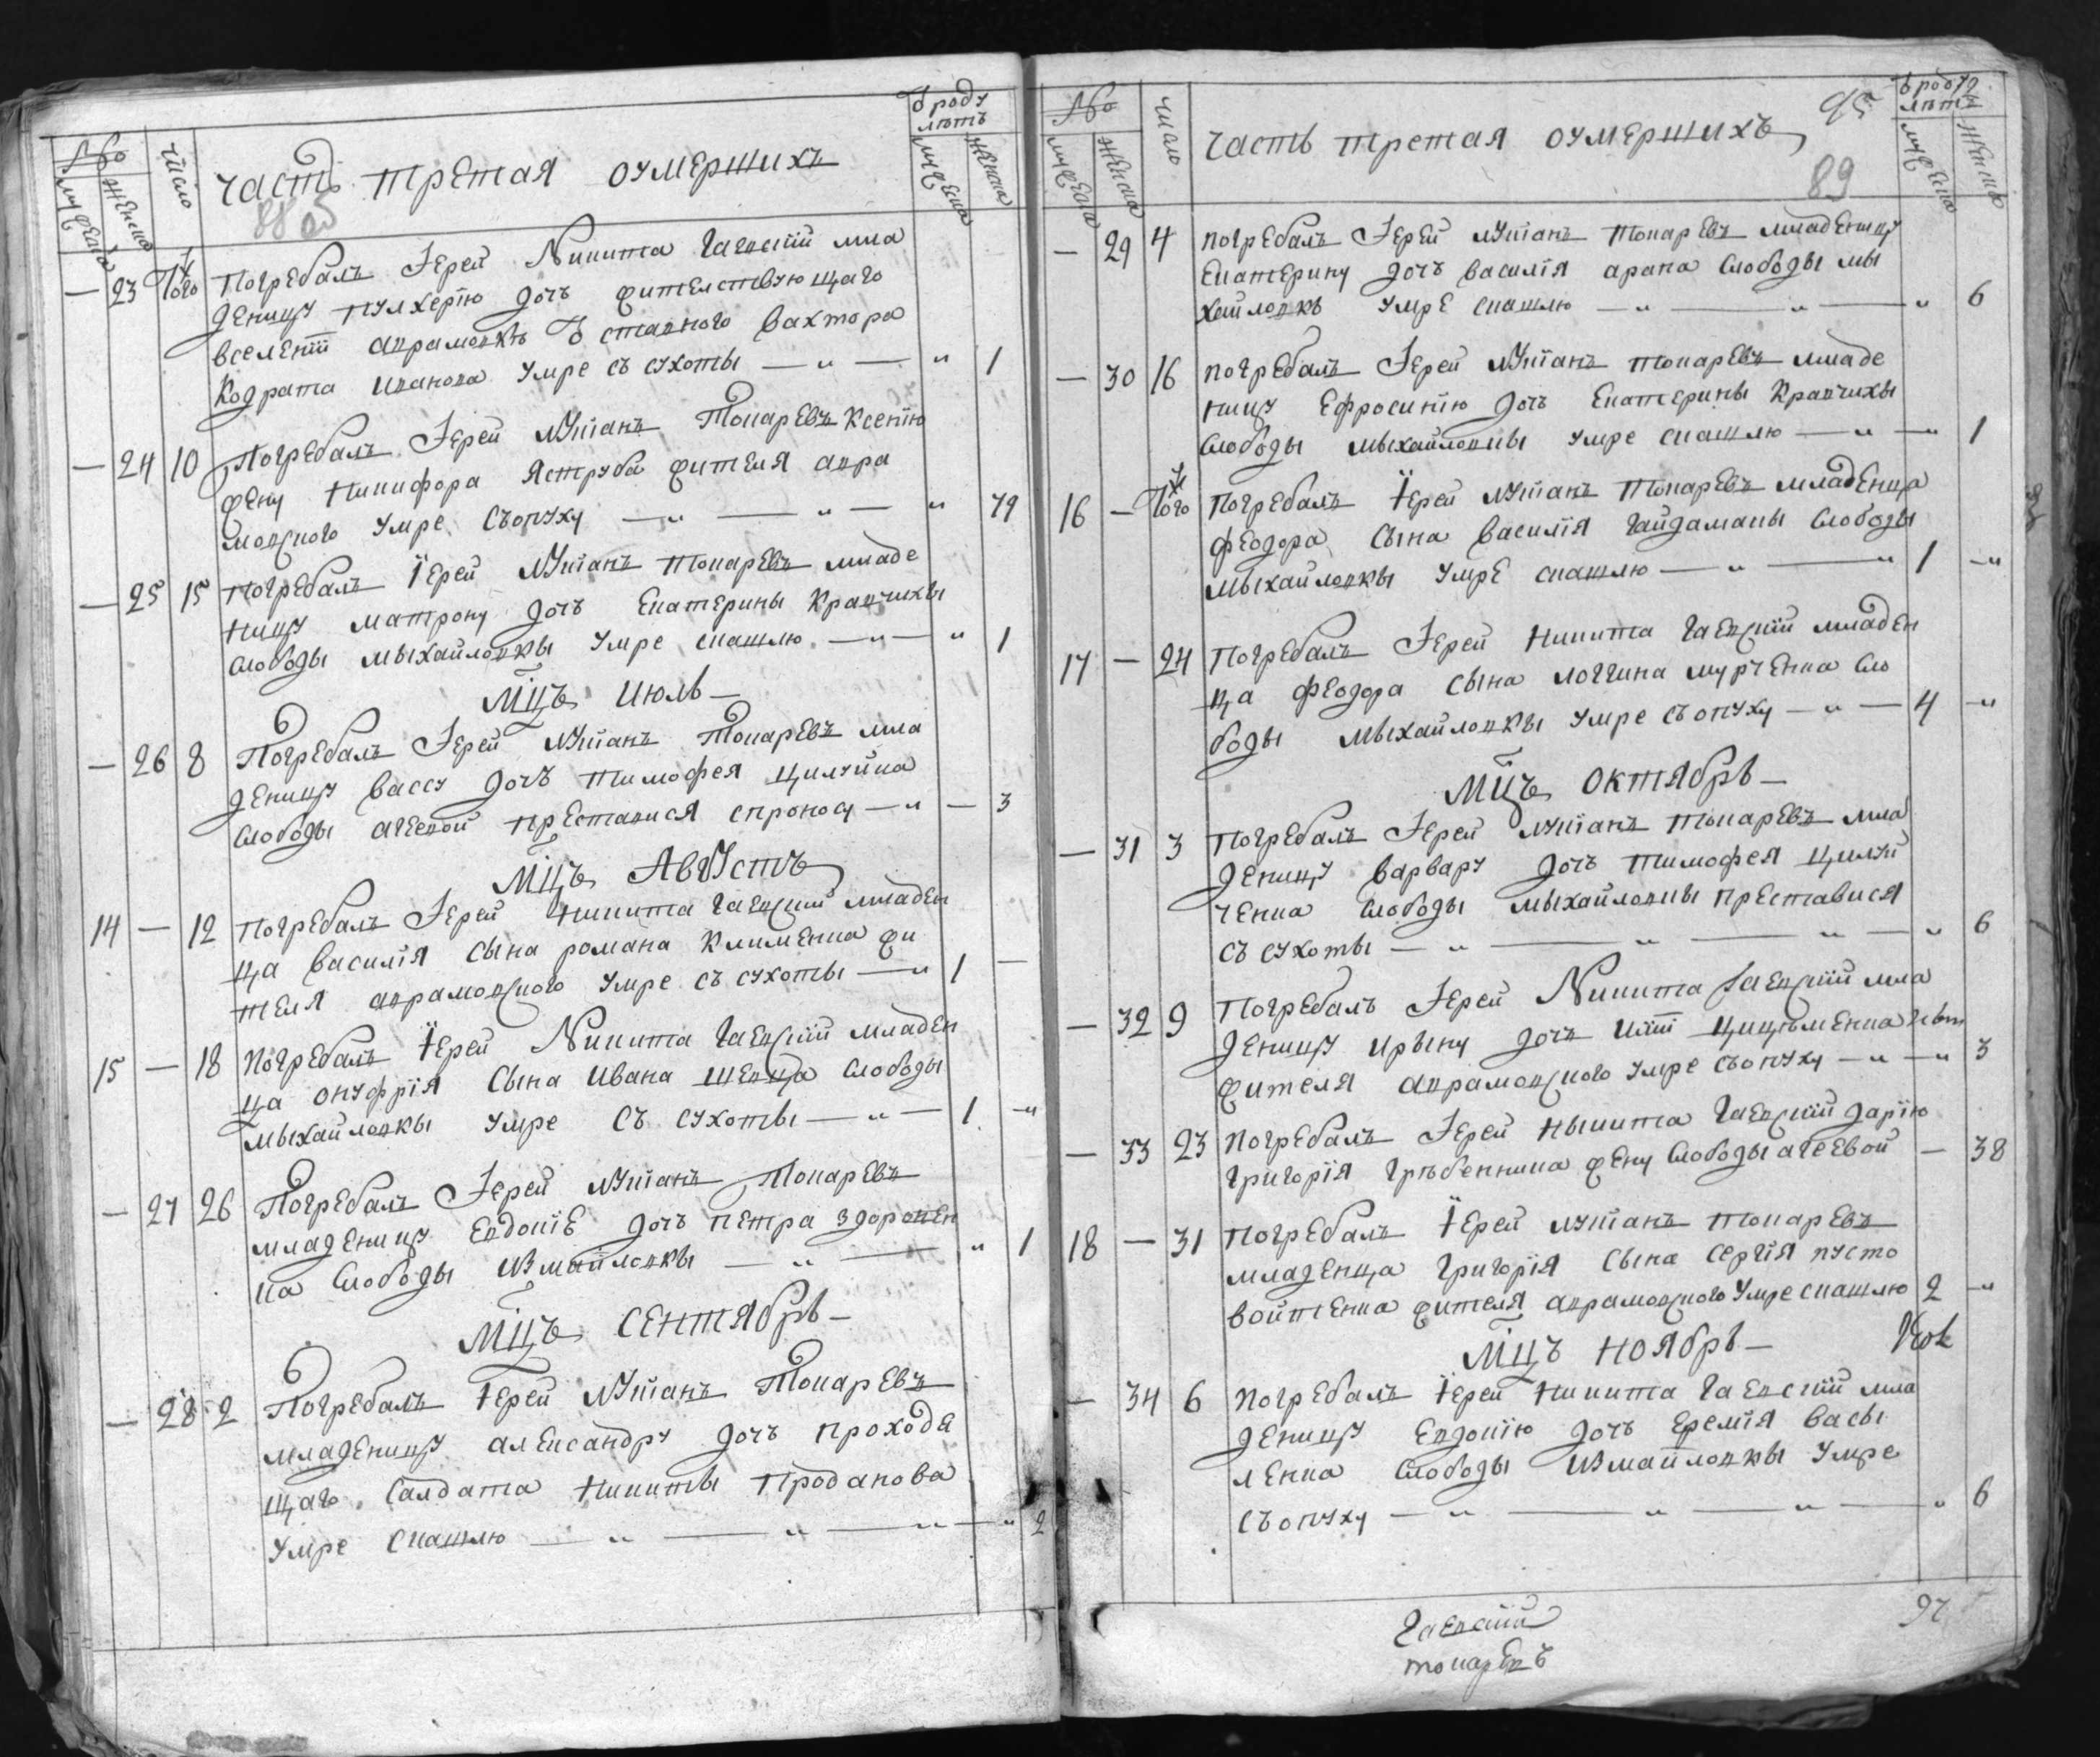 №
мужеска
женска
число
часть третая оумершихъ
88 об
ѿ роду
лѣтъ
мужеска
женска
— 23 Того ж Погребалъ Іерей Никита Гаевскій мла
деницу пулхерію дочъ жителствующаго
вселеніи аврамовкѣ ѿставного вахтора
Кодрата иванова умре съ сухоты — „ — „ 1
— 24 10 Погребалъ Іерей лукіанъ Токаревъ Ксенію
жену никифора яструба жителя авра
мовского умре съопуху — „ — „ — „ 79
— 25 15 погребалъ Іерей лукіанъ токаревъ младе
ницу матрону дочъ екатерины кравчихы
слободы мыхайловкы умре скашлю — „ — „ 1
мцъ июль —
— 26 8 Погребалъ Іерей лукіанъ Токаревъ мла
деницу вассу дочъ тимофея цилуйка
слободы агеевой преставися спроносу — „ — 3
мцъ Августъ
14 — 12 погребалъ Іерей никита гаевскій младен
ца василія сына романа клименка жи
теля аврамовского умре съ сухоты — „ 1 —
15 — 18 погребалъ Іерей Никита гаевскій младен
ца онуфрія сына ивана шевца слободы
мыхайловкы умре съ сухоты — „ — 1 — „
— 27 26 Погребалъ Іерей лукіанъ токаревъ
младеницу евдокіе дочъ петра здоровен
ка слободы измайловкы — „ — „ 1
мцъ сентябрь —
— 28 2 Погребалъ Іерей лукіанъ Токаревъ
младеницу александру дочъ проходя
щаго салдата никиты проданова
умре скашлю — „ — „ — „ — „ 2
№
мужеска
женска
число
часть третая оумершихъ
95
89
ѿ роду
лѣтъ
мужеска
женска
— 29 4 погребалъ Іерей лукіанъ токаревъ младеницу
екатерину дочъ василія арапа слободы мы
хайловкы умре скашлю — „ — „ — „ 6
— 30 16 погребалъ Іерей лукіанъ токаревъ младе
ницу ефросинію дочъ екатерины кравчихы
слободы мыхайловкы умре скашлю — „ — „ 1
16 — Того ж погребалъ Іерей лукіанъ токаревъ младенца
феодора сына василія гайдамакы слободы
мыхайловкы умре скашлю — „ — „ 1 — „
17 — 24 погребалъ Іерей никита гаевскій младен
ца феодора сына логгина мурченка сло
боды мыхайловкы умре съопуху — „ — 4 — „
мцъ октябрь —
— 31 3 погребалъ Іерей лукіанъ токаревъ мла
деницу варвару дочъ тимофея цилуй
ченка слободы мыхайловкы преставися
съ сухоты — „ — „ — „ — „ 6
— 32 9 Погребалъ Іерей Никита Гаевскій мла
деницу ирыну дочъ
жителя аврамовского умре съопуху — „ — „ 3
— 33 23 погребалъ Іерей ныкита гаевскій дарію
григорія гръбенника жену слободы агеевой — 38
18 — 31 погребалъ Іерей лукіанъ токаревъ
младенца григорія сына сергія пусто
войтенка жителя аврамовского умре скашлю 2 — „
мцъ ноябрь —
— 34 6 погребалъ Іерей никита гаевскій мла
деницу евдокію дочъ еремія васы
ленка слободы измайловкы умре
съопуху — „ — „ — „ — „ 6
Гаевскій
токаревъ
97